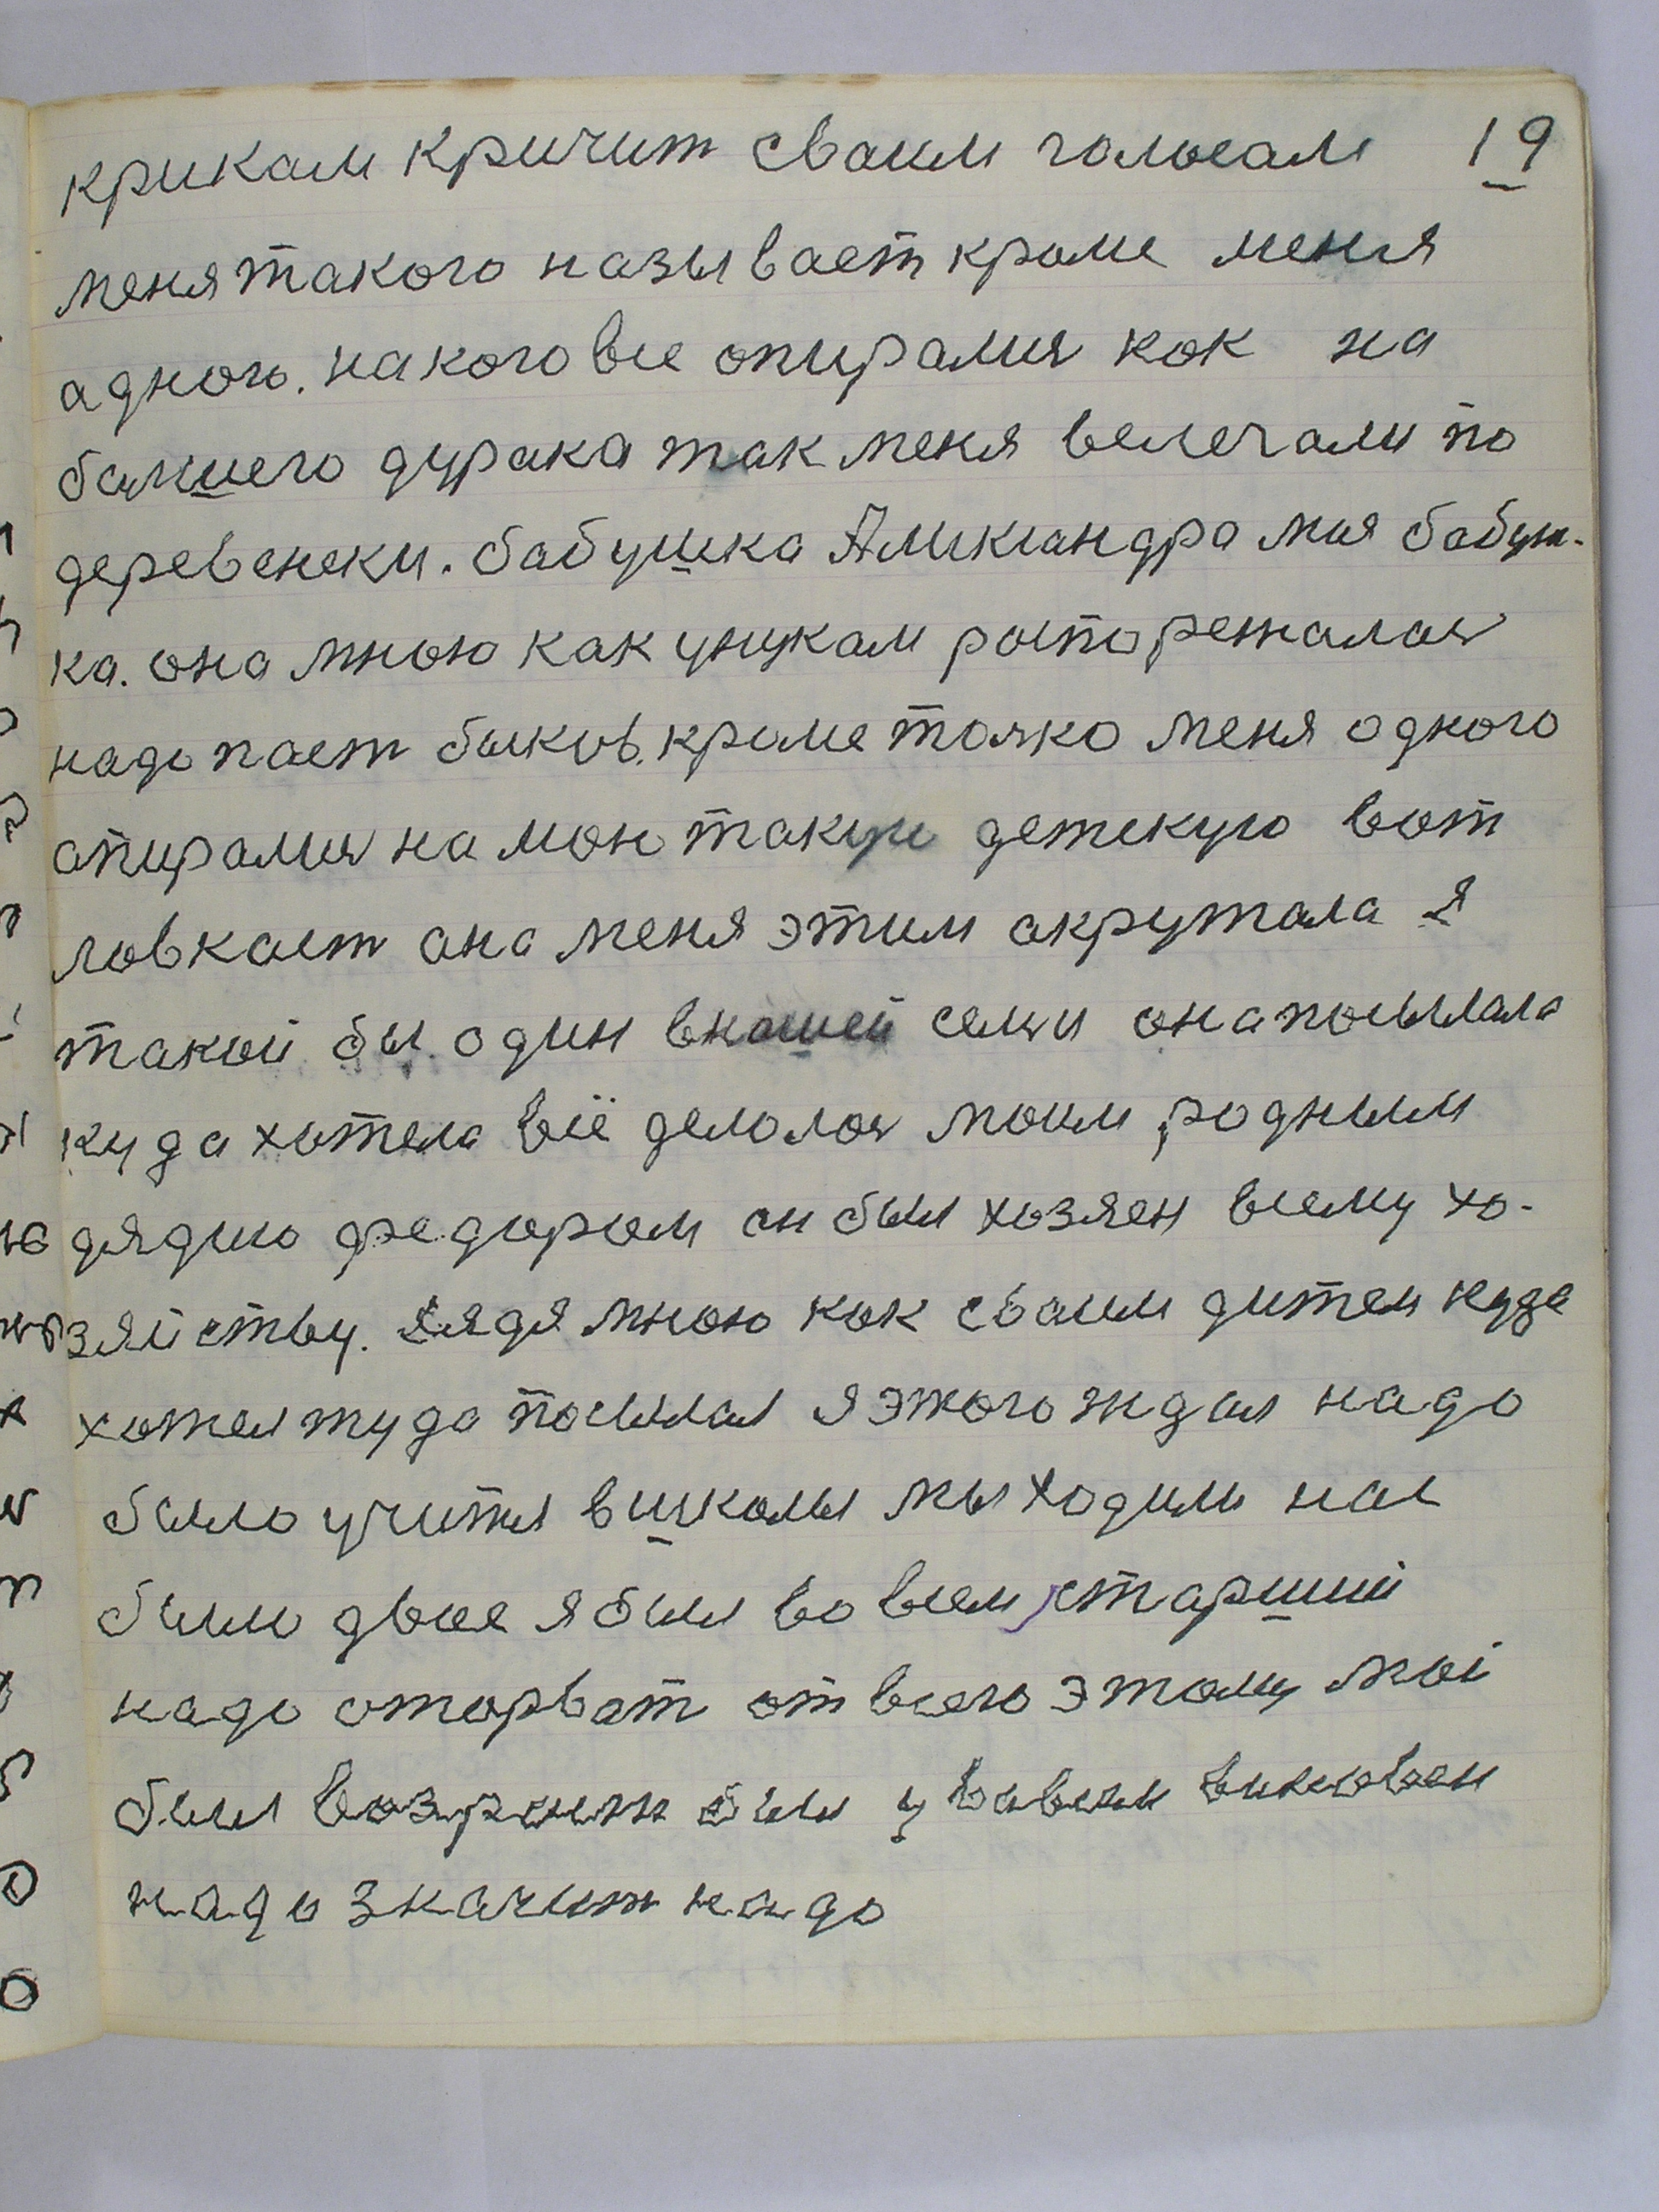 крикам кричит сваим голосам 19
меня такого называет кроме меня
адного. на кого все опирались кок на
балшего дурака так меня велечали по
деревенски. бабушка Аликсандра моя бабуш-
ка. она мною как унукам роспорежалась
надо паст быков. кроме толко меня одного
опирались на мою такую детскую вот
ловкаст ана меня этим акрутала я
такой бы один внашей семи она посылала
куда хотела всё делолось моим родным
дядию федором он был хозяен всему хо-
зяйству. дядя мною как сваим дитем куда
хотел туда посылал я этого ждал надо
было учится вшколы мы ходили нас
было двое я был во всем старший
надо оторват от всего этому мой
был возрост был у вовсем виноват
надо значит надо